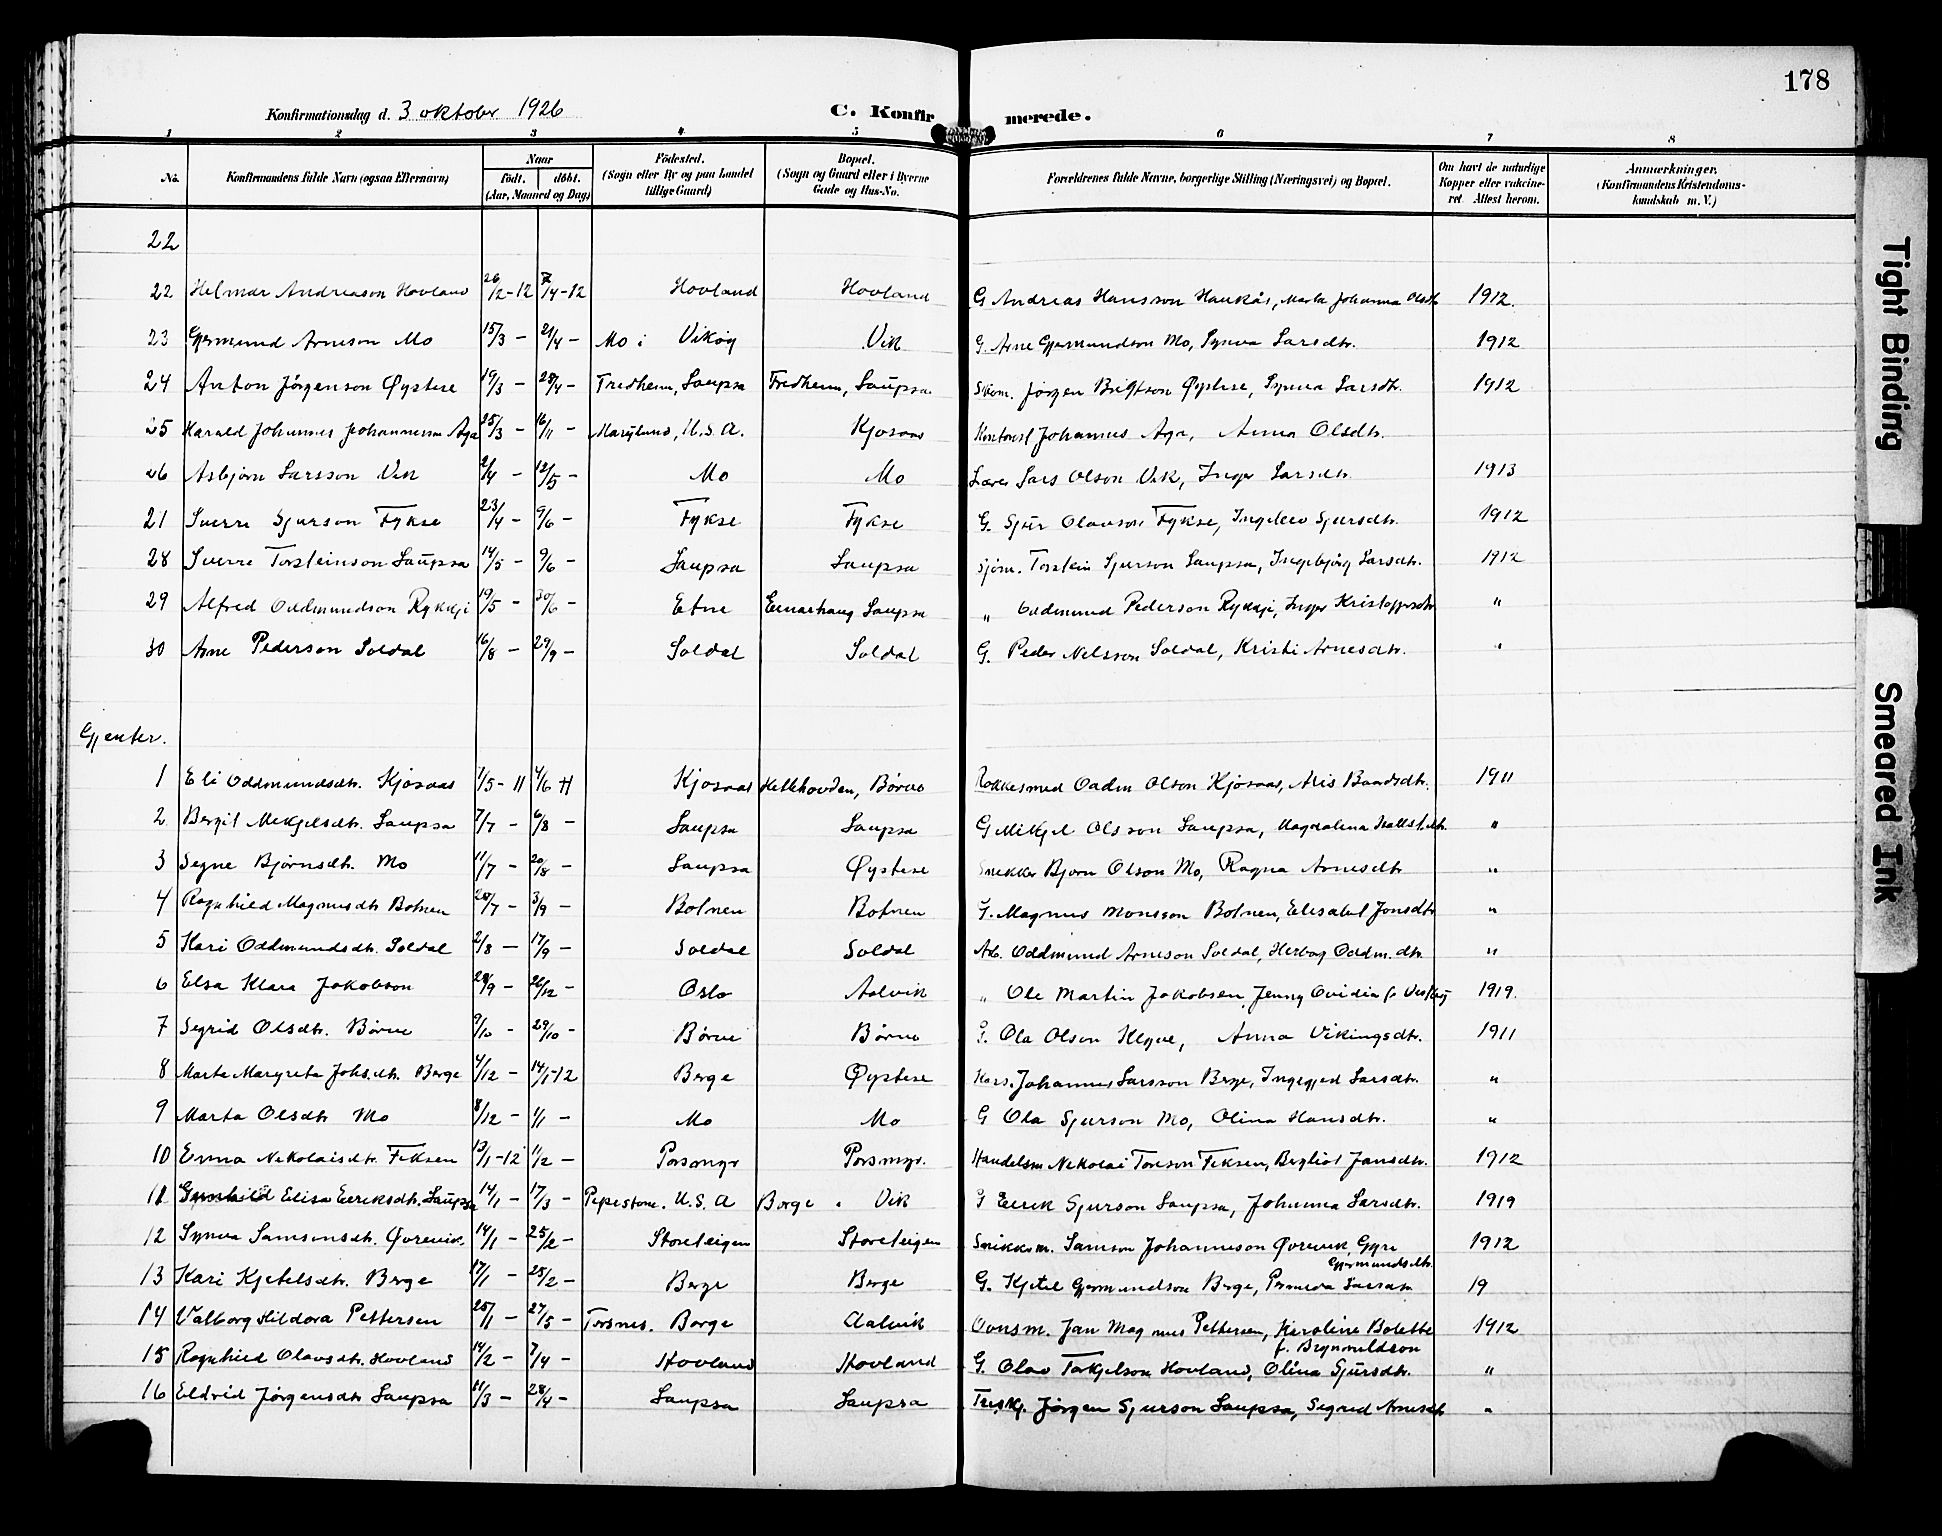 178
Konfirmationsdag d. 3 oktober 1926 C. Konfirmerede.
1 2 3 4 5 6 7 8
No. Konfirmandens fulde Navn (ogsaa Efternavn) Naar født. døbt. (Aar, Maaned og Dag) Fødested. (Sogn eller By og paa Landet tillige Gaard) Bopæl. (Sogn og Gaard eller i Byerne Gade og Hus-No. Forældrenes fulde Navne, borgerlige Stilling (Næringsvei) og Bopæl. Om havt de naturlige Kopper eller vaccineret. Attest herom. Anmærkninger. (Konfirmandens Kristendomskundskab m. V.)
22
22 Helmar Andreason Hovland 26/2-12 7/4-12 Hovland Hovland G Andreas Hansson Haukås, Marta Johanna Olsdtr 1912.
23 Gjermund Arneson Mo 15/3 - 21/4 - Mo i Vikøy Vik G. Arne Gjermundson Mo, Synva Larsdtr. 1912
24 Anton Jørgenson Øystese 19/3 - 28/4 - Fredheim, Laupsa Fredheim, Laupsa. Skom. Jørgen Brigtson Øystese, Synva Larsdtr. 1912
25 Harald Johannes Johannesson Aga 25/3 - 16/11 - Maryland, U.S.A. Kjosaas Johannes Aga, Anna Olsdtr.
26 Asbjørn Larsson Vik 2/4 - 12/5 - Mo Mo Lærer Lars Olson Vik, Inger Larsdtr. 1913
27 Sverre Sjurson Fykse 23/4 - 9/6 - Fykse Fykse G. Sjur Olavson Fykse, Ingeleiv Sjursdtr. 1912
28 Sverre Torsteinson Laupsa 14/5 - 9/6 - Laupsa Laupsa Sjøm. Torstein Sjurson Laupsa, Ingebjørg Larsdtr. 1912
29 Alfred Oddmundson Rykkji 19/5 - 30/6 - Etne Einarhaug Laupsa " Oddmund Pederson Rykkji, Inger Kristoffersdtr "
30 Arne Pederson Soldal 16/8 - 29/9 - Soldal Soldal G. Peder Nelsson Soldal, Kristi Arnesdtr. "
Gjenter.
1 Eli Oddmundsdtr. Kjosaas 1/5 - 11 4/6 11 Kjosaas Hettehovden, Børve Rokkesmed Oddm Olson Kjosaas, Aris Baardsdtr. 1911
2 Bergit Mikjelsdtr. Laupsa 7/7 - 6/8 - Laupsa Laupsa G Mikjel Olsson Laupsa, Magdalena "
3 Segne Bjørnsdtr. Mo 11/7 - 20/8 - Laupsa Øystese Snekker Bjørn Olson Mo, Ragna Arnesdtr "
4 Ragnhild Magnusdtr Botnen 28/7 - 3/9 - Botnen Botnen G. Magnus Monsson Botnen, Elisabet Jonsdtr "
5 Kari Oddmundsdtr. Soldal 2/8 - 17/9 - Soldal Soldal Arb. Oddmund Arneson Soldal, Herborg Oddm.dtr. "
6 Elsa Klara Jakobson 29/9 - 26/12 - Oslo Aalvik " Ole Martin Jakobsen, Jenny Ovidia f. 1919.
7 Segrid Olsdtr. Børve 9/10 - 29/10 - Børve Børve G. Ola Olson Kleyve, Anna Vikingsdtr. 1911
8 Marta Margreta Johs.dtr. Berge 4/12 - 14/1-12 Berge Øystese Johannes Larsson Berge, Ingegjed Larsdtr. "
9 Marta Olsdtr Mo 8/12 - 1/1 - Mo Mo G Ola Sjurson Mo, Olina Hansdtr. "
10 Erna Nekolaisdtr. Feksen 13/1-12 1/2 - Porsmyr Porsmyr. Handelsm Nekolai Toreson Feksen, Bergliot Jansdtr. 1912
11 Gunhild Elisa Eeriksdtr. Laupsa 14/1 - 17/3 - Pipestone. U.S.A Berge " Vik G Eerik Sjurson Laupsa, Johanna Larsdtr. 1919
12 Synva Samsonsdtr. Øvrevik. 14/1 - 25/2 - Storeteigen Storeteigen Snikkarm. Samson Johanneson Øvrevik, Gyri 1912
Gjermundsdtr.
13 Kari Kjetelsdtr. Berge 17/1 - 25/2 - Berge Berge G. Kjetel Gjermundson Berge, Larsdtr 19
14 Valborg Hildora Pettersen 25/1 - 27/5 - Torsnes. Borge Aalvik Ovnsm. Jan Magnus Pettersen, Karoline Bolette 1912
f. Brynmildson
15 Ragnhild Olavsdtr. Hovland 14/2 - 7/4 - Hovland Hovland G. Olav Torkjelson Hovland, Olina Sjursdtr. "
16 Eldrid Jørgensdtr Laupsa 11/3 - 28/4 - Laupsa Laupsa Jørgen Sjurson Laupsa, Segrid Arnesdtr "
Tight Binding
Smeared Ink